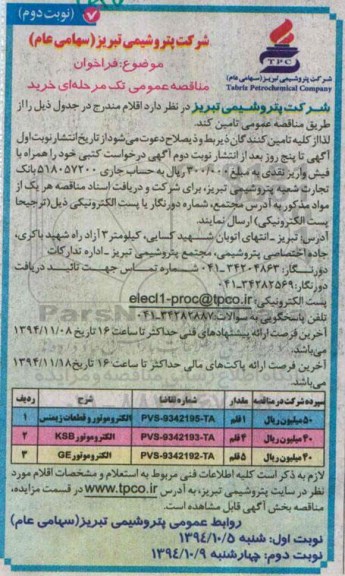 (نوبت دوم)
شرکت پتروشیمی تبریز (سهامی عام)
موضوع: فراخوان
مناقصه عمومی تک مرحله‌ای خرید
TPC
شرکت پتروشیمی تبریز (سهامی عام)
Tabriz Petrochemical Company
شرکت پتروشیمی تبریز در نظر دارد اقلام مندرج در جدول ذیل را از
طریق مناقصه عمومی تامین کند.
لذا از کلیه تامین کنندگان ذیربط و ذیصلاح دعوت می‌شود از تاریخ انتشار نوبت اول
آگهی تا پنج روز بعد از انتشار نوبت دوم آگهی درخواست کتبی خود را همراه با
فیش واریز نقدی به مبلغ ۳۰۰/۰۰۰ ریال به حساب جاری ۵۱۸۰۵۷۲۰۰ بانک
تجارت شعبه پتروشیمی تبریز، برای شرکت و دریافت اسناد مناقصه هر یک از
مواد مذکور به آدرس مجتمع، شماره دورنگار یا پست الکترونیکی ذیل (ترجیحا
پست الکترونیکی) ارسال نمایند.
آدرس: تبریز ـ انتهای اتوبان شهید کسایی، کیلومتر ۳ آزاد راه شهید باکری،
جاده اختصاصی پتروشیمی، مجتمع پتروشیمی تبریز ـ اداره تدارکات
دورنگار: ۳۴۲۰۴۸۶۳-۰۴۱ شماره تماس جهت تائید دریافت
دورنگار: ۳۴۲۸۲۵۶۹-۰۴۱
پست الکترونیکی: elecl1-proc@tpco.ir
تلفن پاسخگویی به سوالات: ۳۴۲۸۲۸۸۷-۰۴۱
آخرین فرصت ارائه پیشنهادهای فنی حداکثر تا ساعت ۱۶ تاریخ ۱۳۹۴/۱۱/۰۸
می‌باشد.
آخرین فرصت ارائه پاکت‌های مالی حداکثر تا ساعت ۱۶ تاریخ ۱۳۹۴/۱۱/۱۸
می‌باشد.
ردیف شرح شماره تقاضا مقدار سپرده شرکت در مناقصه
۱ الکتروموتور و قطعات زیمنس PVS-9342195-TA ۱ قلم ۵۰ میلیون ریال
۲ الکتروموتور KSB PVS-9342193-TA ۴ قلم ۴۰ میلیون ریال
۳ الکتروموتور GE PVS-9342192-TA ۵ قلم ۴۰ میلیون ریال
لازم به ذکر است کلیه اطلاعات فنی مربوط به استعلام و مشخصات اقلام مورد
نظر در سایت پتروشیمی تبریز، به آدرس www.tpco.ir در قسمت مزایده،
مناقصه بخش آگهی قابل مشاهده است.
روابط عمومی پتروشیمی تبریز (سهامی عام)
نوبت اول: شنبه ۱۳۹۴/۱۰/۵
نوبت دوم: چهارشنبه ۱۳۹۴/۱۰/۹